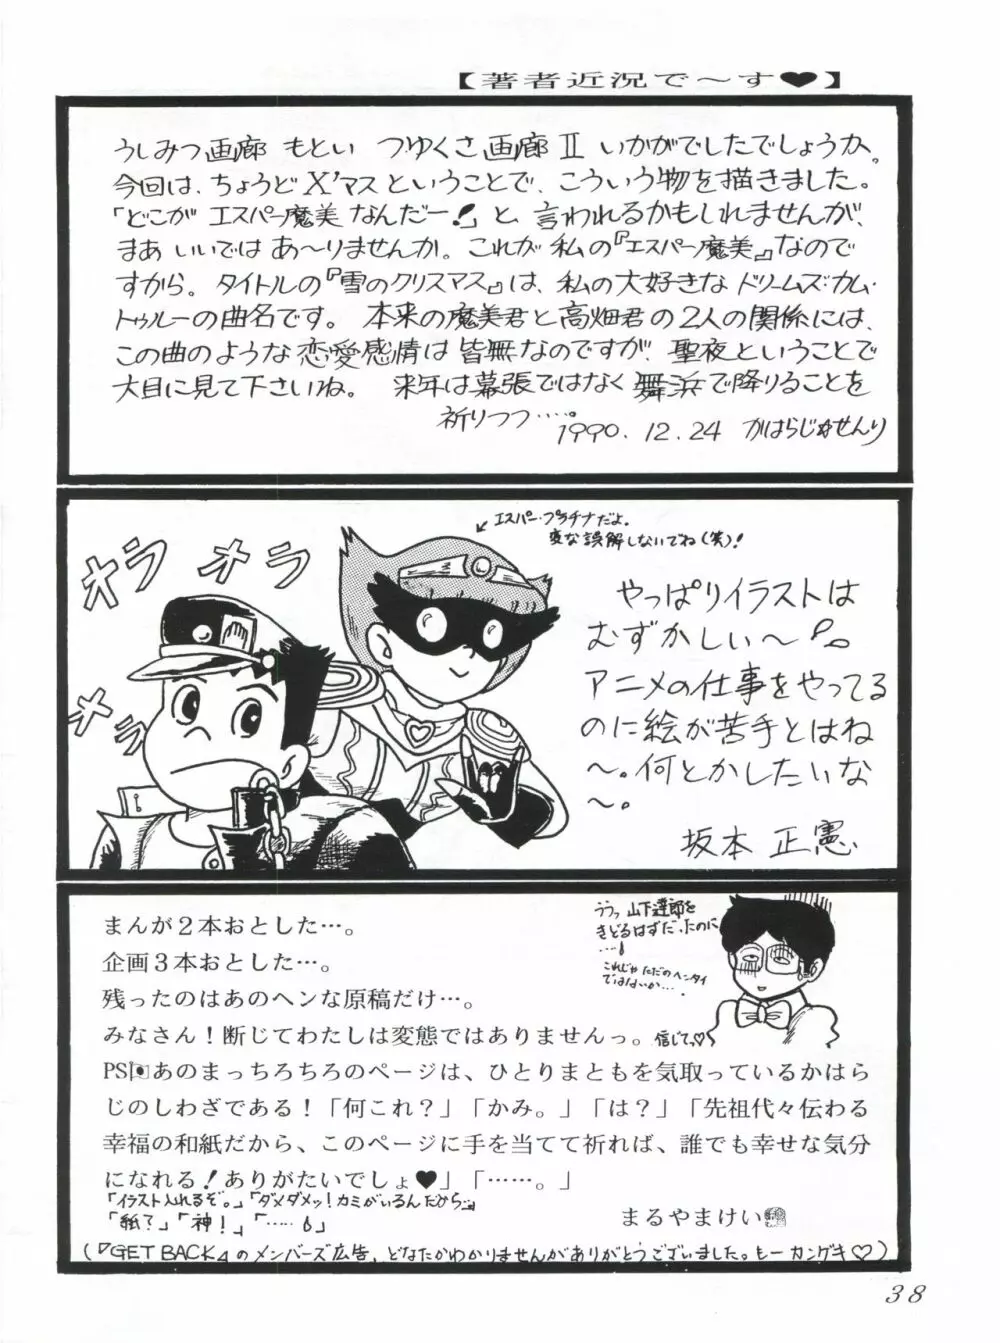 【著者近況で〜す♥】
うしみつ画廊 もとい つゆくさ画廊Ⅱ いかがでしたでしょうか。
今回は、ちょうどX'マスということで、こういう物を描きました。
「どこが エスパー魔美 なんだー!」と、言われるかもしれませんが、
まあ いいでは あ〜りませんか。これが 私の『エスパー魔美』なので
すから。タイトルの『雪のクリスマス』は、私の大好きな ドリームズ・カム・
トゥルーの曲名です。本来の魔美君と高畑君の2人の関係には、
この曲のような恋愛感情は皆無なのですが、聖夜ということで
大目に見て下さいね。 来年は幕張ではなく 舞浜で降りることを
祈りつつ……。
1990.12.24 かはらじゅせんり
エスパー・プラチナだよ。
変な誤解しないでね(笑)!
オラ オラ
オラ
やっぱりイラストは
むずかしい〜。
アニメの仕事をやってる
のに絵が苦手とはね
〜。何とかしたいな
〜。
坂本 正憲
まんが2本おとした…。
企画3本おとした…。
残ったのはあのヘンな原稿だけ…。
みなさん!断じてわたしは変態ではありませんっ。信じて♡
ううっ 山下達郎を
きどるはずだったのに
…!
これじゃ ただのヘンタイ
ではないか…。
PSあのまっちろちろのページは、ひとりまともを気取っているかはら
じのしわざである!「何これ?」「かみ。」「は?」「先祖代々伝わる
幸福の和紙だから、このページに手を当てて祈れば、誰でも幸せな気分
になれる!ありがたいでしょ♥」「……。」
「イラスト入れるぞ。」「ダメダメッ!カミがいるんだから。」
「紙?」「神!」「……」
まるやまけい
(『GET BACK』のメンバーズ広告、どなたかわかりませんがありがとうございました。もーカンゲキ♡)
38